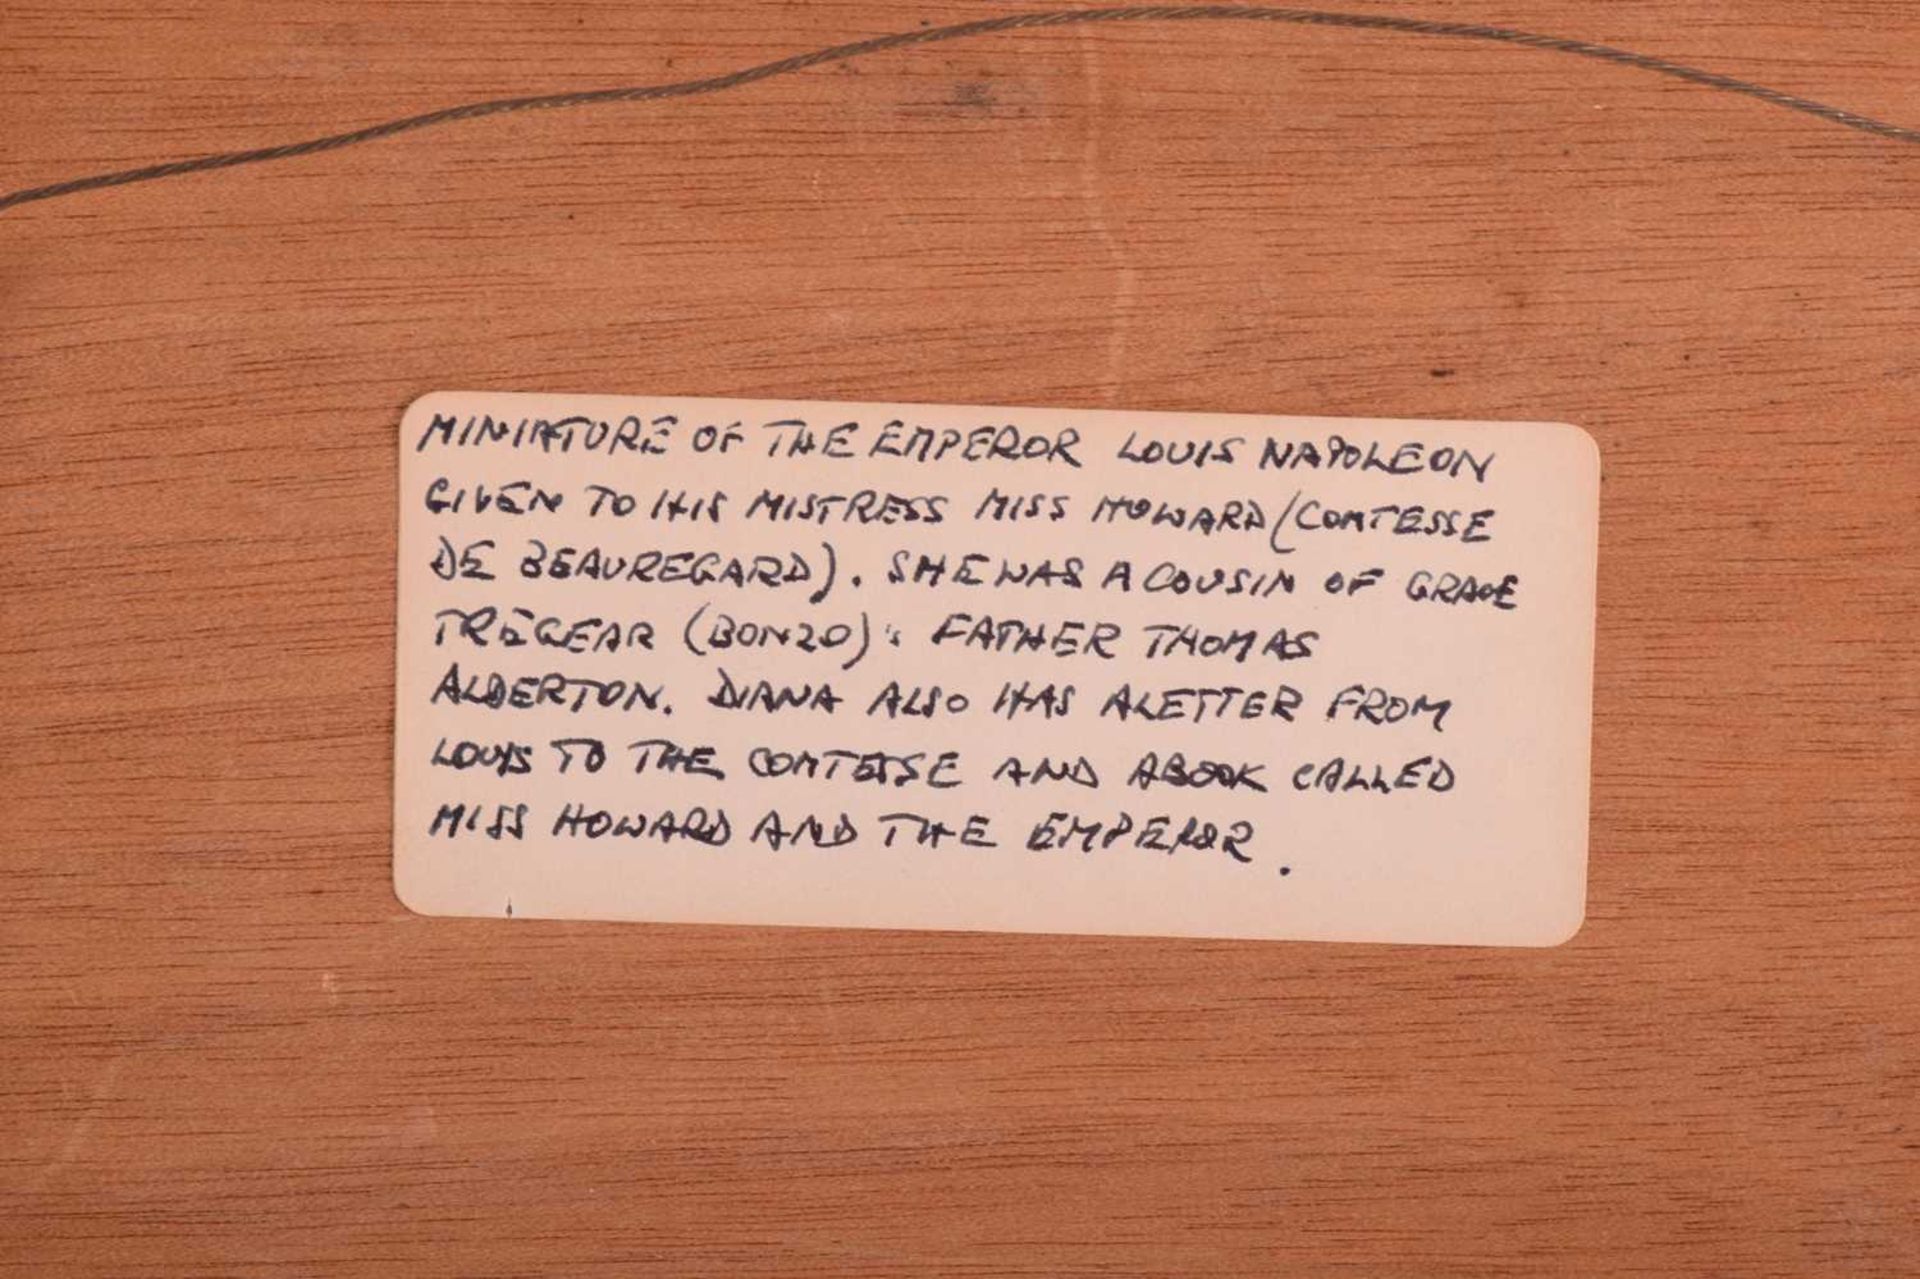 MINIATURE OF THE EMPEROR LOUIS NAPOLEON
GIVEN TO HIS MISTRESS MISS HOWARD (COMTESSE
DE BEAUREGARD). SHE WAS A COUSIN OF GRACE
TREGEAR (BONZO)'S FATHER THOMAS
ALDERTON. DIANA ALSO HAS A LETTER FROM
LOUIS TO THE COMTESSE AND A BOOK CALLED
MISS HOWARD AND THE EMPEROR.